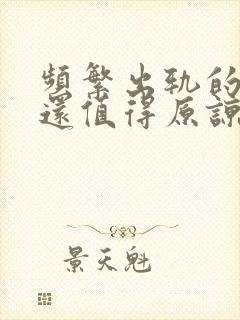 頻繁出軌的
還值得原諒
景天魁